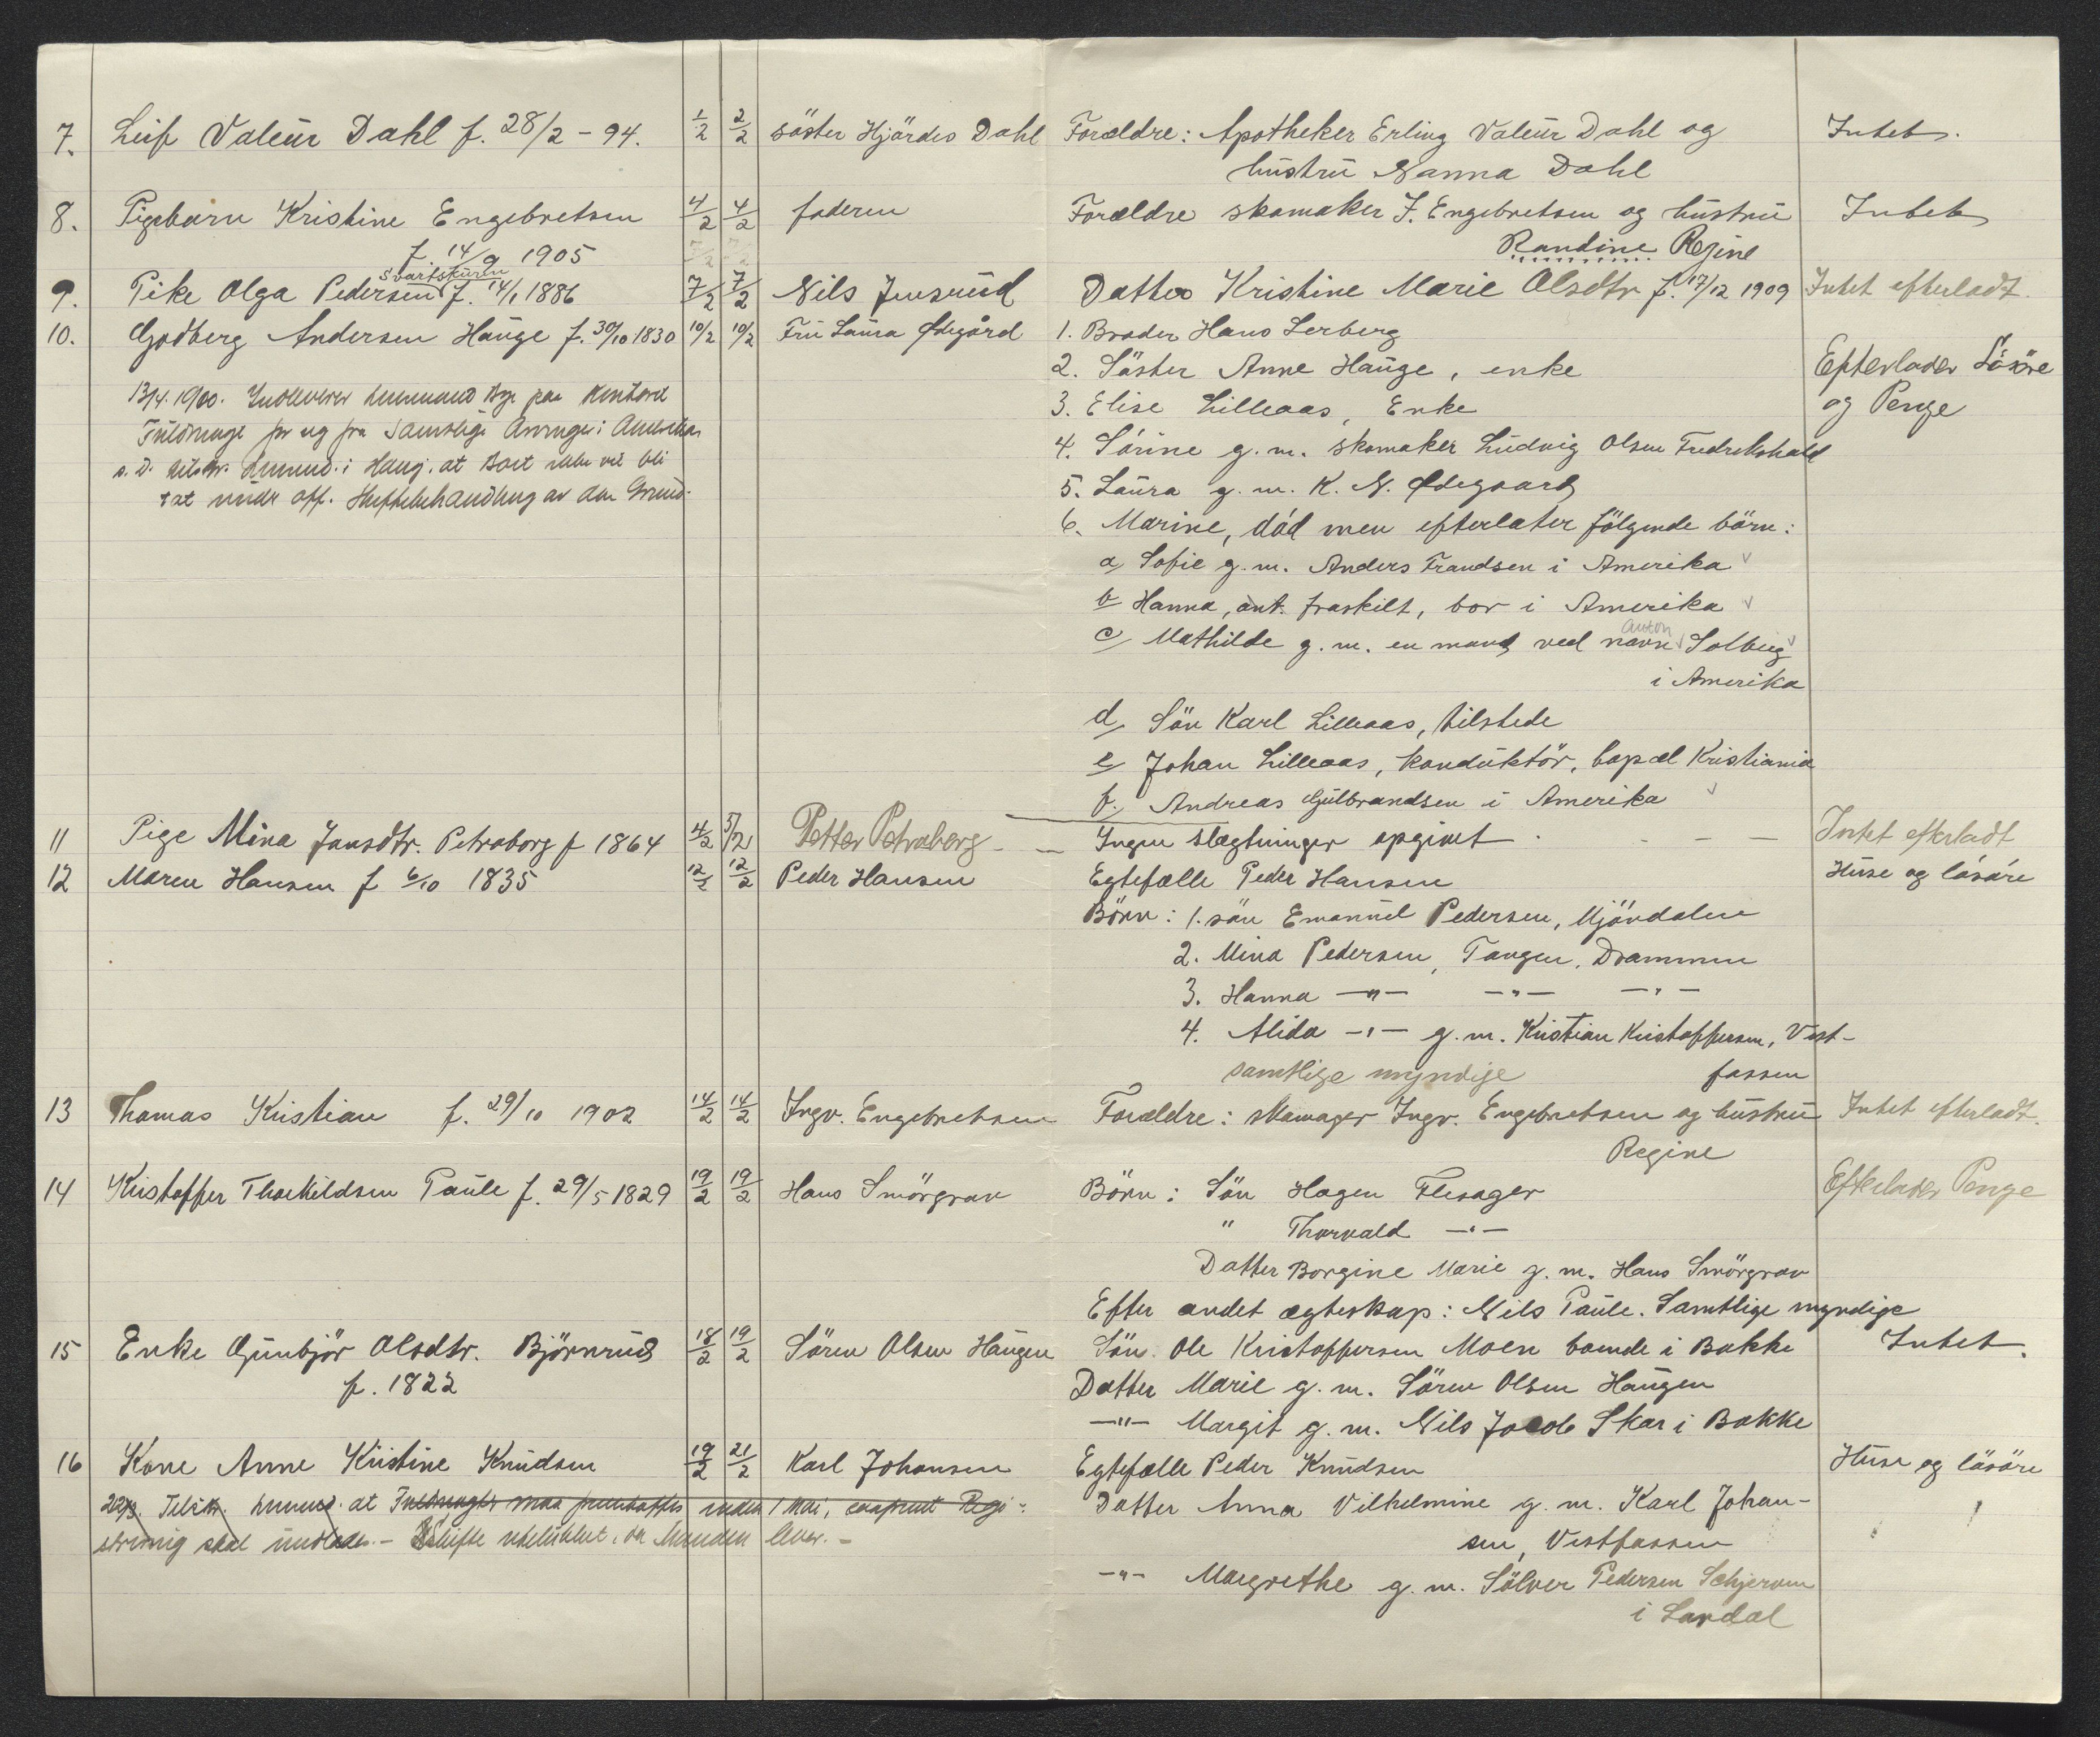 7. Leif Valeur Dahl f. 28/2 - 94. 1/2 2/2 söster Hjördis Dahl Forældre: Apotheker Erling Valeur Dahl og Intet.
hustru Nanna Dahl
8. Pigebarn Kristine Engebretsen 4/2 4/2 faderen Forældre skomaker J. Engebretsen og hustru Intet
f. 14/9 1905 Randine Regine
Svartskuren
9. Pike Olga Pedersen f. 14/1 1886 7/2 7/2 Nils Jensrud Datter Kristine Marie Olsdtr f. 17/12 1909 Intet efterladt.
10. Godberg Andersen Hauge f. 30/10 1830 10/2 10/2 Fru Laura Ødegård 1. Broder Hans Lerberg
2. Söster Anne Hauge, enke Efterlader Lösöre
13/4. 1910. paa Kontoret 3. Elise Lilleaas, Enke og Penge
Fuldmagt for og fra Samtlige Arvinger i Amerika 4. Sörine g. m. skomaker Ludvig Olsen Fredrikshald
s. D. i Haug, at Boet ikke vil bli
tat under off. Skiftebehandling av den Grund. 5. Laura g. m. K. N. Ødegaard
6. Marine, död men efterlater fölgende börn:
a, Sofie g. m. Anders Frandsen i Amerika
b Hanna, ant. fraskilt, bor i Amerika
Anton
c, Mathilde g. m. en mand ved navn Solberg
i Amerika
d, Sön Karl Lilleaas, tilstede
e, Johan Lilleaas, konduktör, bopæl Kristiania
f. Andreas Gulbrandsen i Amerika
11 Pige Mina Jansdtr. Petraborg f 1864 4/2 5/2 Petter Petraberg - - Ingen slægtninger opgivet - - Intet efterladt
12 Maren Hansen f 6/10 1835 12/2 12/2 Peder Hansen Egtefælle Peder Hansen Huse og lösöre
Börn: 1. sön Emanuel Pedersen, Mjöndalen
2. Mina Pedersen, Tangen, Drammen
3. Hanna -"- -"- -"-
4. Alida -"- g. m. Kristian Kristoffersen, Vest-
samtlige myndige fossen
13 Thomas Kristian f. 29/10 1902 14/2 14/2 Ingv. Engebretsen Forældre: skomager Ingv. Engebretsen og hustru Intet efterladt.
Regine
14 Kristoffer Thorkildsen Paule f. 29/5 1829 19/2 19/2 Hans Smörgrav Börn: Sön Hagen Flesager Efterlader Penge
" Thorvald -"-
Datter Borgine Marie g. m. Hans Smörgrav
Efter andet ægteskap: Nils Paule. Samtlige myndige
15 Enke Gunbjör Olsdtr. Björnrud 18/2 19/2 Sören Olsen Haugen Sön Ole Kristoffersen Moen boende i Bakke Intet.
f. 1822 Datter Marie g. m. Sören Olsen Haugen
-"- Margit g. m. Nils Jacob Skar i Bakke
16 Kone Anne Kristine Knudsen 19/2 21/2 Karl Johansen Egtefælle Peder Knudsen Huse og lösöre
at Fuldmagt maa fremskaffes inden 1 Mai, Regi- Datter Anna Vilhelmine g. m. Karl Johan-
strering skal - Skifte utelukket, da Manden lever. - sen, Vestfossen
-"- Margrethe g. m. Sölver Pedersen Schjerven
i Lardal